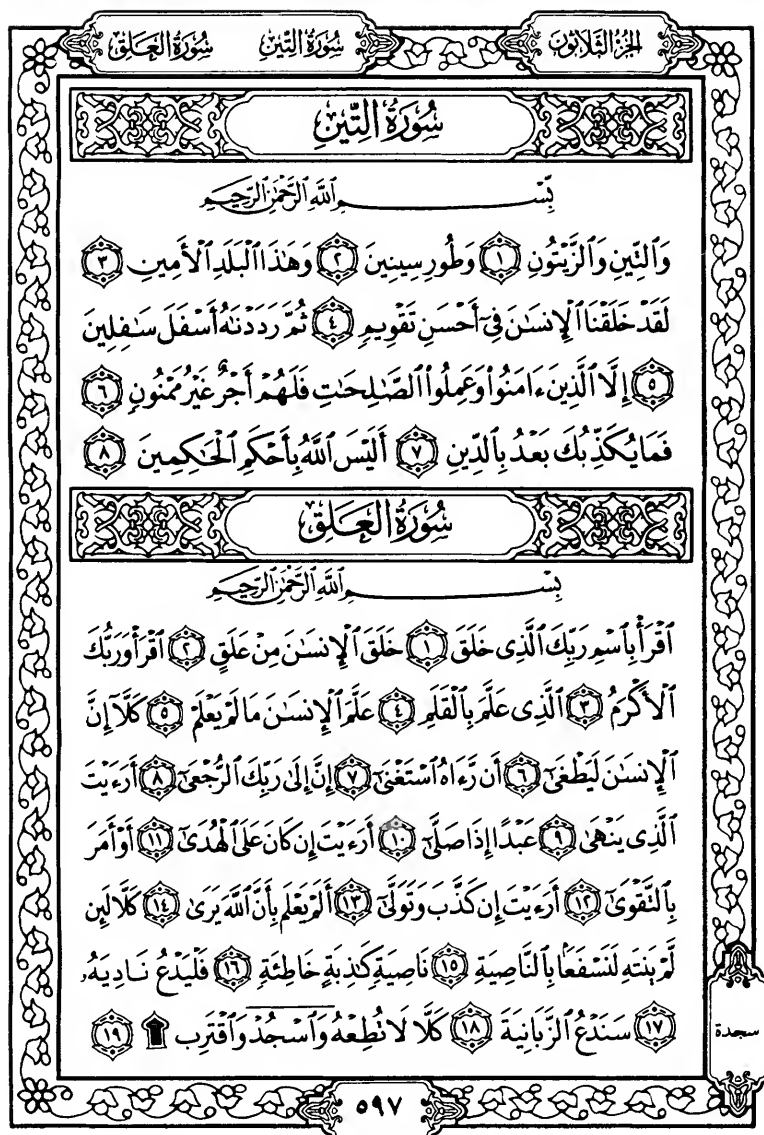 الجزء الثلاثون
سُورَةُ التِّينِ
سُورَةُ العَلَقِ
سُورَةُ التِّينِ
بِسْمِ ٱللَّهِ ٱلرَّحْمَٰنِ ٱلرَّحِيمِ
وَٱلتِّينِ وَٱلزَّيْتُونِ ١ وَطُورِ سِينِينَ ٢ وَهَٰذَا ٱلْبَلَدِ ٱلْأَمِينِ ٣
لَقَدْ خَلَقْنَا ٱلْإِنسَٰنَ فِىٓ أَحْسَنِ تَقْوِيمٍ ٤ ثُمَّ رَدَدْنَٰهُ أَسْفَلَ سَٰفِلِينَ
٥ إِلَّا ٱلَّذِينَ ءَامَنُوا۟ وَعَمِلُوا۟ ٱلصَّٰلِحَٰتِ فَلَهُمْ أَجْرٌ غَيْرُ مَمْنُونٍ ٦
فَمَا يُكَذِّبُكَ بَعْدُ بِٱلدِّينِ ٧ أَلَيْسَ ٱللَّهُ بِأَحْكَمِ ٱلْحَٰكِمِينَ ٨
سُورَةُ العَلَقِ
بِسْمِ ٱللَّهِ ٱلرَّحْمَٰنِ ٱلرَّحِيمِ
ٱقْرَأْ بِٱسْمِ رَبِّكَ ٱلَّذِى خَلَقَ ١ خَلَقَ ٱلْإِنسَٰنَ مِنْ عَلَقٍ ٢ ٱقْرَأْ وَرَبُّكَ
ٱلْأَكْرَمُ ٣ ٱلَّذِى عَلَّمَ بِٱلْقَلَمِ ٤ عَلَّمَ ٱلْإِنسَٰنَ مَا لَمْ يَعْلَمْ ٥ كَلَّآ إِنَّ
ٱلْإِنسَٰنَ لَيَطْغَىٰٓ ٦ أَن رَّءَاهُ ٱسْتَغْنَىٰٓ ٧ إِنَّ إِلَىٰ رَبِّكَ ٱلرُّجْعَىٰٓ ٨ أَرَءَيْتَ
ٱلَّذِى يَنْهَىٰ ٩ عَبْدًا إِذَا صَلَّىٰٓ ١٠ أَرَءَيْتَ إِن كَانَ عَلَى ٱلْهُدَىٰٓ ١١ أَوْ أَمَرَ
بِٱلتَّقْوَىٰٓ ١٢ أَرَءَيْتَ إِن كَذَّبَ وَتَوَلَّىٰٓ ١٣ أَلَمْ يَعْلَم بِأَنَّ ٱللَّهَ يَرَىٰ ١٤ كَلَّا لَئِن
لَّمْ يَنتَهِ لَنَسْفَعًۢا بِٱلنَّاصِيَةِ ١٥ نَاصِيَةٍ كَٰذِبَةٍ خَاطِئَةٍ ١٦ فَلْيَدْعُ نَادِيَهُۥ
١٧ سَنَدْعُ ٱلزَّبَانِيَةَ ١٨ كَلَّا لَا تُطِعْهُ وَٱسْجُدْ وَٱقْتَرِب ۩ ١٩
سجدة
٥٩٧